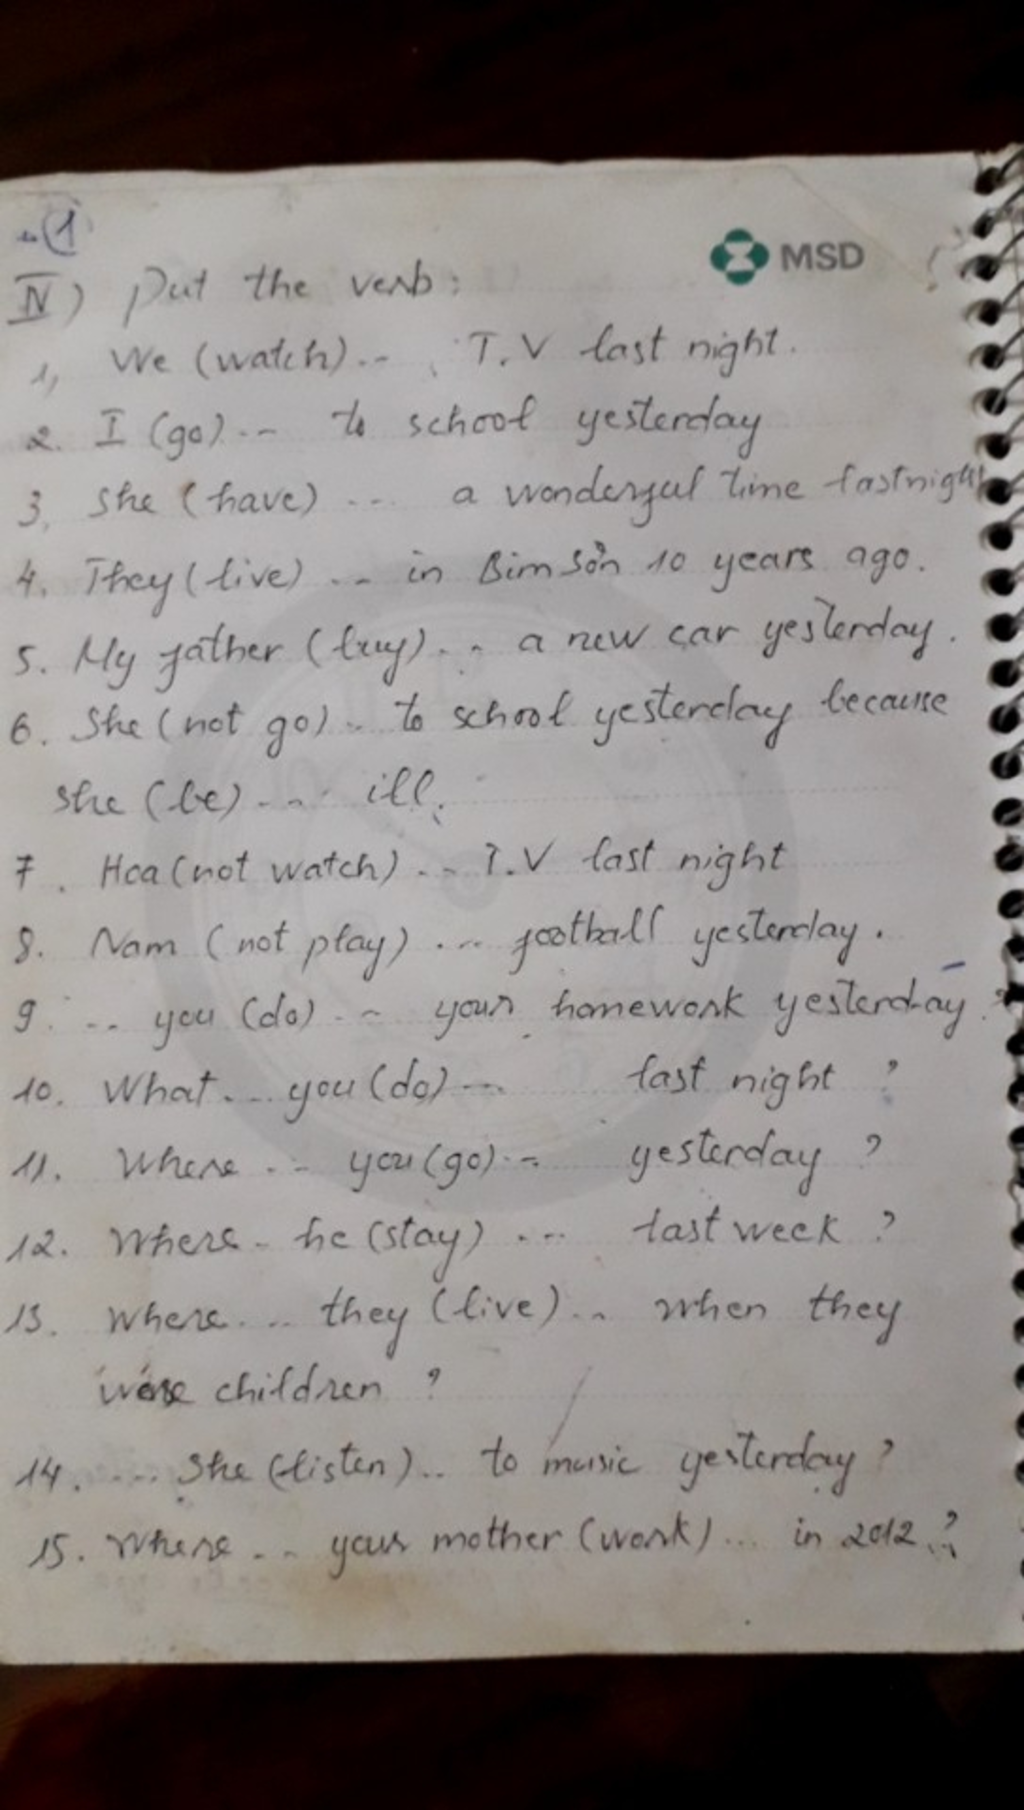 1
MSD
IV) Put the verb:
1, We (watch)... T.V last night.
2. I (go)... to school yesterday
3. She (have) ... a wonderful time last night
4. They (live) ... in Bỉm Sơn 10 years ago.
5. My father (buy)... a new car yesterday.
6. She (not go)... to school yesterday because
she (be) ... ill.
7. Hoa (not watch) ... T.V last night
8. Nam (not play) ... football yesterday.
9. ... you (do) ... your homework yesterday?
10. What ... you (do) ... last night ?
11. Where ... you (go) ... yesterday ?
12. Where - he (stay) ... last week ?
13. Where ... they (live) ... when they
were children ?
14. ... She (listen)... to music yesterday?
15. Where ... your mother (work) ... in 2012 ?